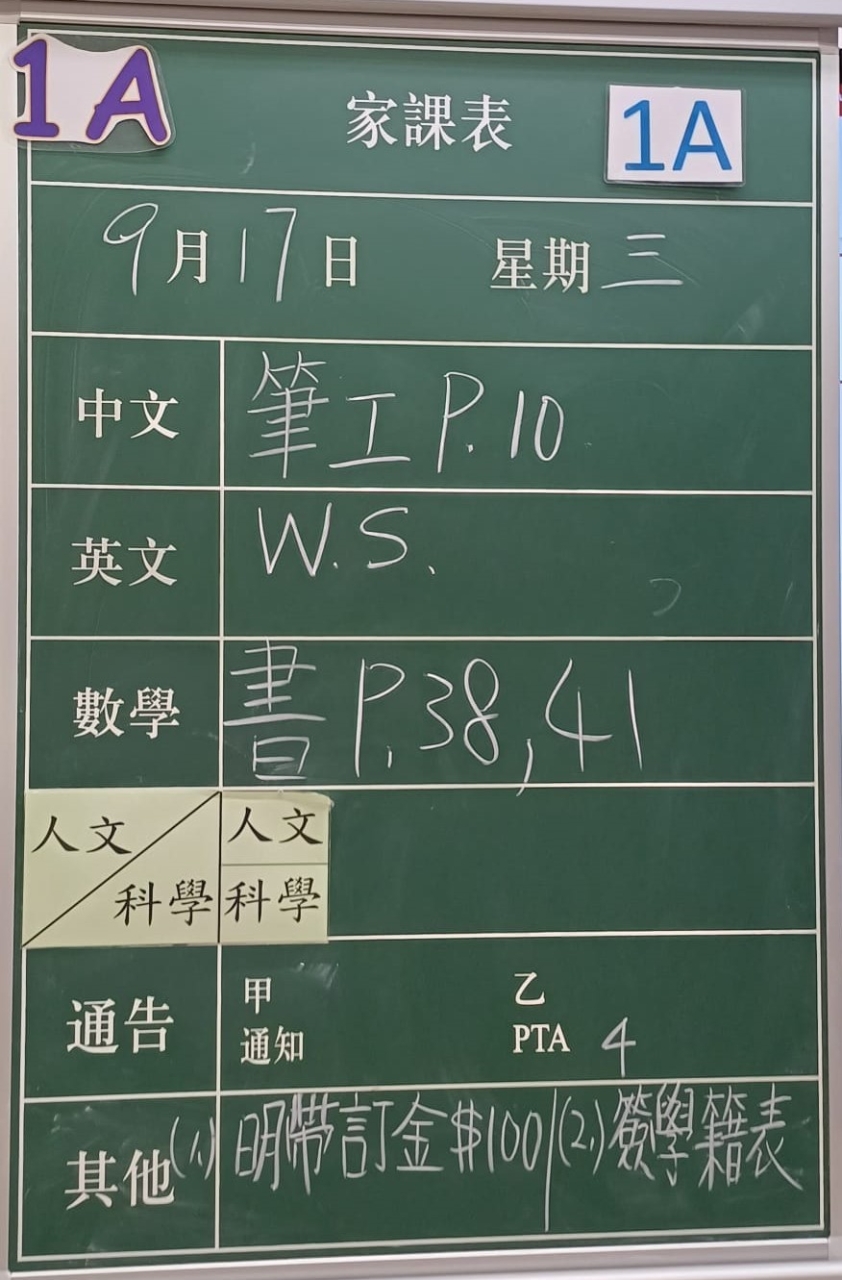 1A
家課表 1A
9月17日 星期三
中文 筆工 P.10
英文 W.S.
數學 書 P.38,41
人文 人文
科學 科學
通告 甲 乙
通知 PTA 4
其他 (1.) 明帶訂金$100/(2.) 簽學籍表